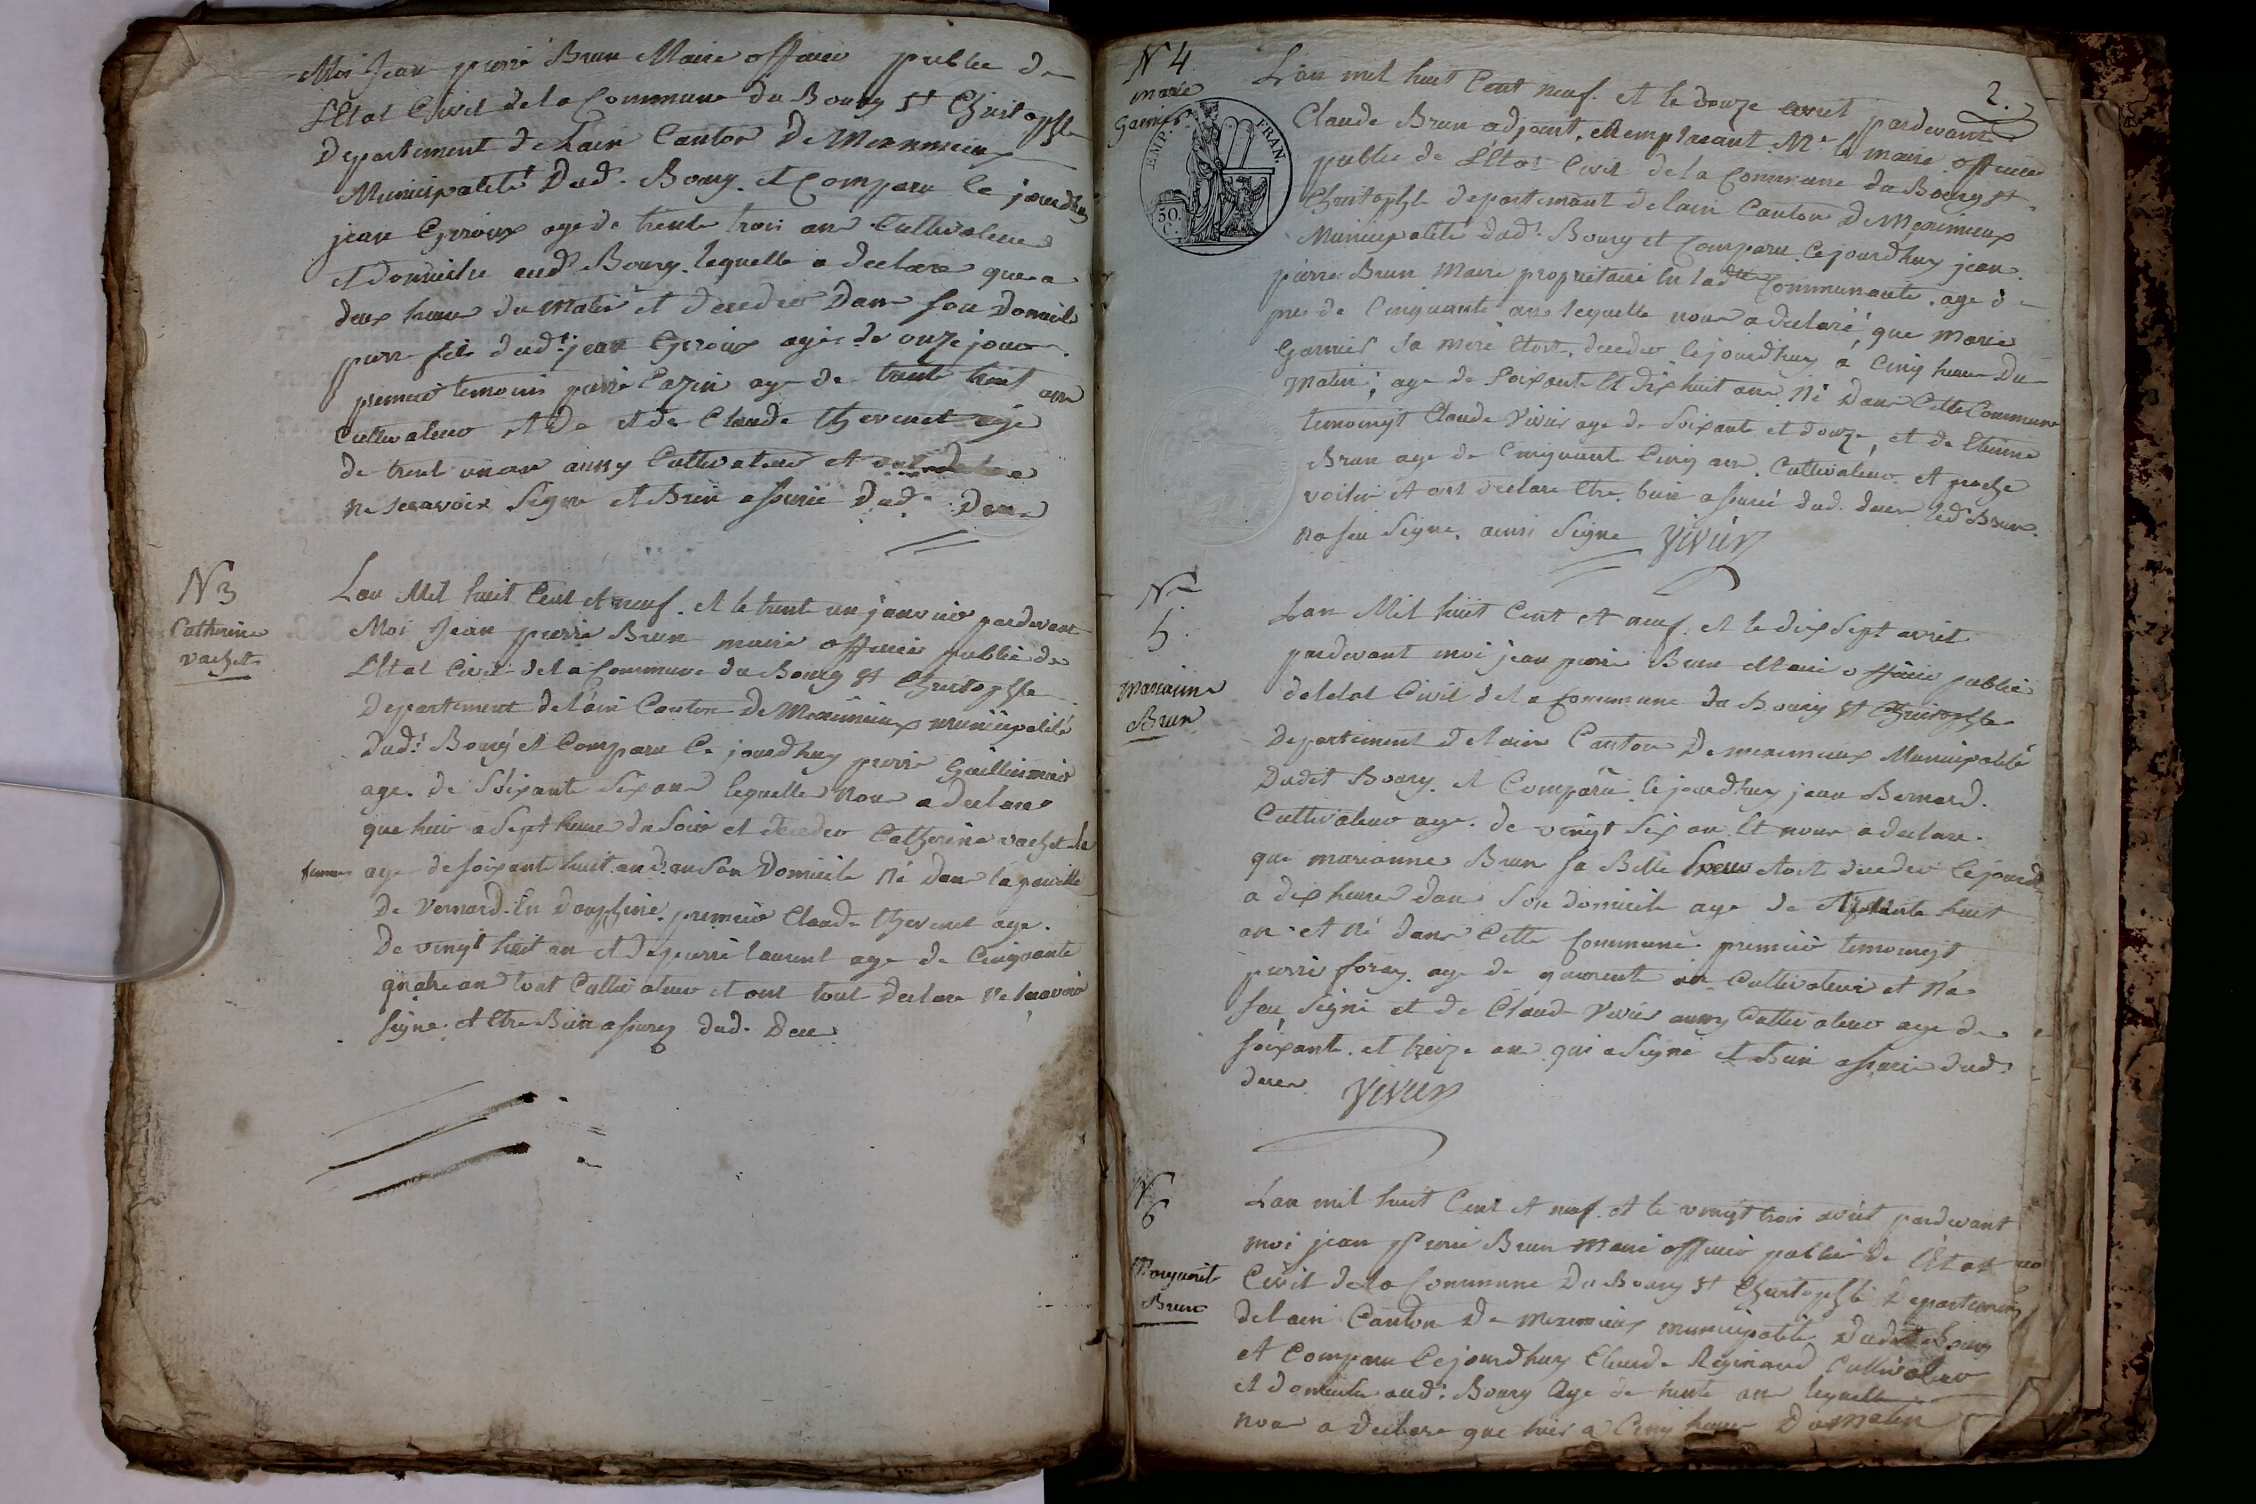 Moi Jean pierre Brun Maire officier public de
L'Etat Civil de la Commune du Bourg St Christophle
Departement de Lain Canton de Meximieux
Municipalité Dud. Bourg. et Comparu le jourdhuy
jean Giroux age de trente trois an Cultivateur
et domicilie aud. Bourg. lequelle a declare que a
deux heure du Matin et decedes Dans son Domicile
pierre fils dud. jean Giroux agés de onze jour
premier temoins pierre Cazin age de trente huit an
Cultivateur et De et de Claude thevenet age
de trent un an aussy Cultivateur et
Ne scavoir Signe et Bien assurée Dud. Dece
N 3
Catherine
vachet
Lan Mil huit Cent et neuf. et le trent un janvier pardevant
Moi Jean pierre Brun maire officier public de
L'Etat Civil de la Commune du Bourg St Christophle
Departement de lain Canton de Meximieux municipalité
Dud. Bourg et Comparu Ce jourdhuy pierre Guillermin
age. de Soixante Six ans lequelle Nous a declare
que hier a Sept heure du Soir et decedes Catherine vachet la
femme age de soixant huit an dans Son Domicile Né Dans la paroisse
De Vernard. En Dauphine. premier Claude thevenet age.
De vingt huit an et de pierre laurent age de Cinquante
quatre an tout Cultivateur et ont tout Declare Ne scavoir
signe. et Etre Bien assurez dud. Dece
N 4
marie
Garnier
EMP. FRAN.
50.
C.
2.
Lan mil huit Cent neuf. et le douze avril pardevant
Claude Brun adjoint. Remplacant Mr le maire officier
public de L'Etat Civil de la Commune du Bourg St
Christophle departement de lain Canton de Meximieux
Municipalité dud. Bourg et Comparu Cejourdhuy jean
pierre Brun Maire proprietaire En ladte Communauté. age de
pres de Cinquante ans lequelle nous a declaré que Marie
Garnier sa mere Etoit. decedes Cejourdhuy a Cinq heure Du
Matin; age de Soixante et dix huit ans Né Dans Cette Commune
temoingt Claude Vivier age de Soixante et douze, et de Etienne
Brun age de Cinquante Cinq an Cultivateur et proche
voisin et ont declare Etre bien assuré dud. deces led. Brun
na seu Signe. ainsi Signe Vivier
N
5
marianne
Brun
Lan Mil huit Cent et neuf. et le dix Sept avril
pardevant moi jean pierre Brun Maire officier public
de letat Civil de la Commune du Bourg St Christophle
Departement de lain Canton de meximieux Municipalité
Dudit Bourg. et Comparu Cejourdhuy jean Bernard.
Cultivateur age. de vingt Six an Et nous a declare.
que marianne Brun sa Belle Soeur etoit decedes Cejourdh
a dix heure dans Son domicile age de huit
an et Né dans Cette Commune. premier temoingt
pierre foray. age de quarente an Cultivateur et Na
seu Signé et de Claude Vivier aussy Cultivateur age de
Soixante. et treize an qui a Signé et Bien assurée dud.
deces Vivier
N
6
Marguerite
Brun
Lan mil huit Cent et neuf. et le vingt trois avril pardevant
moi jean pierre Brun Maire officier public de l'Etat
Civil de la Commune Du Bourg St Christophle Departement
de lain Canton de meximieux municipalité Dudit Bourg
et Comparu Cejourdhuy Claude Reginaud Cultivateur
et domicilie aud. Bourg age de trente an lequelle
nous a Declare que hier a Cinq heure Du Matin